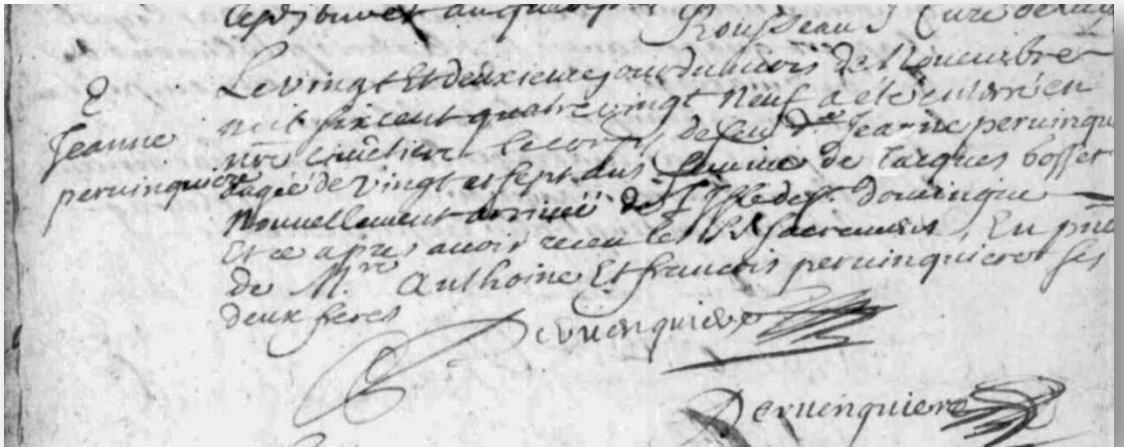 Rousseau Curé
Jeanne
peruinquiere
Le vingt Et deuxieme jour du mois de Nouembre
mil six cent quatre vingt neuf a été enterré en
nre cimetiere le corps de feu Jeanne peruinqu
agée de vingt et sept ans femme de Jacques bosset
Nouvellement arriuée de l'Isle de St. domingue
Et ce apres auoir receu les Sts sacremens, En
de Mre Authoine Et francois peruinquiere ses
deux freres
Peruinquiere
Peruinquiere